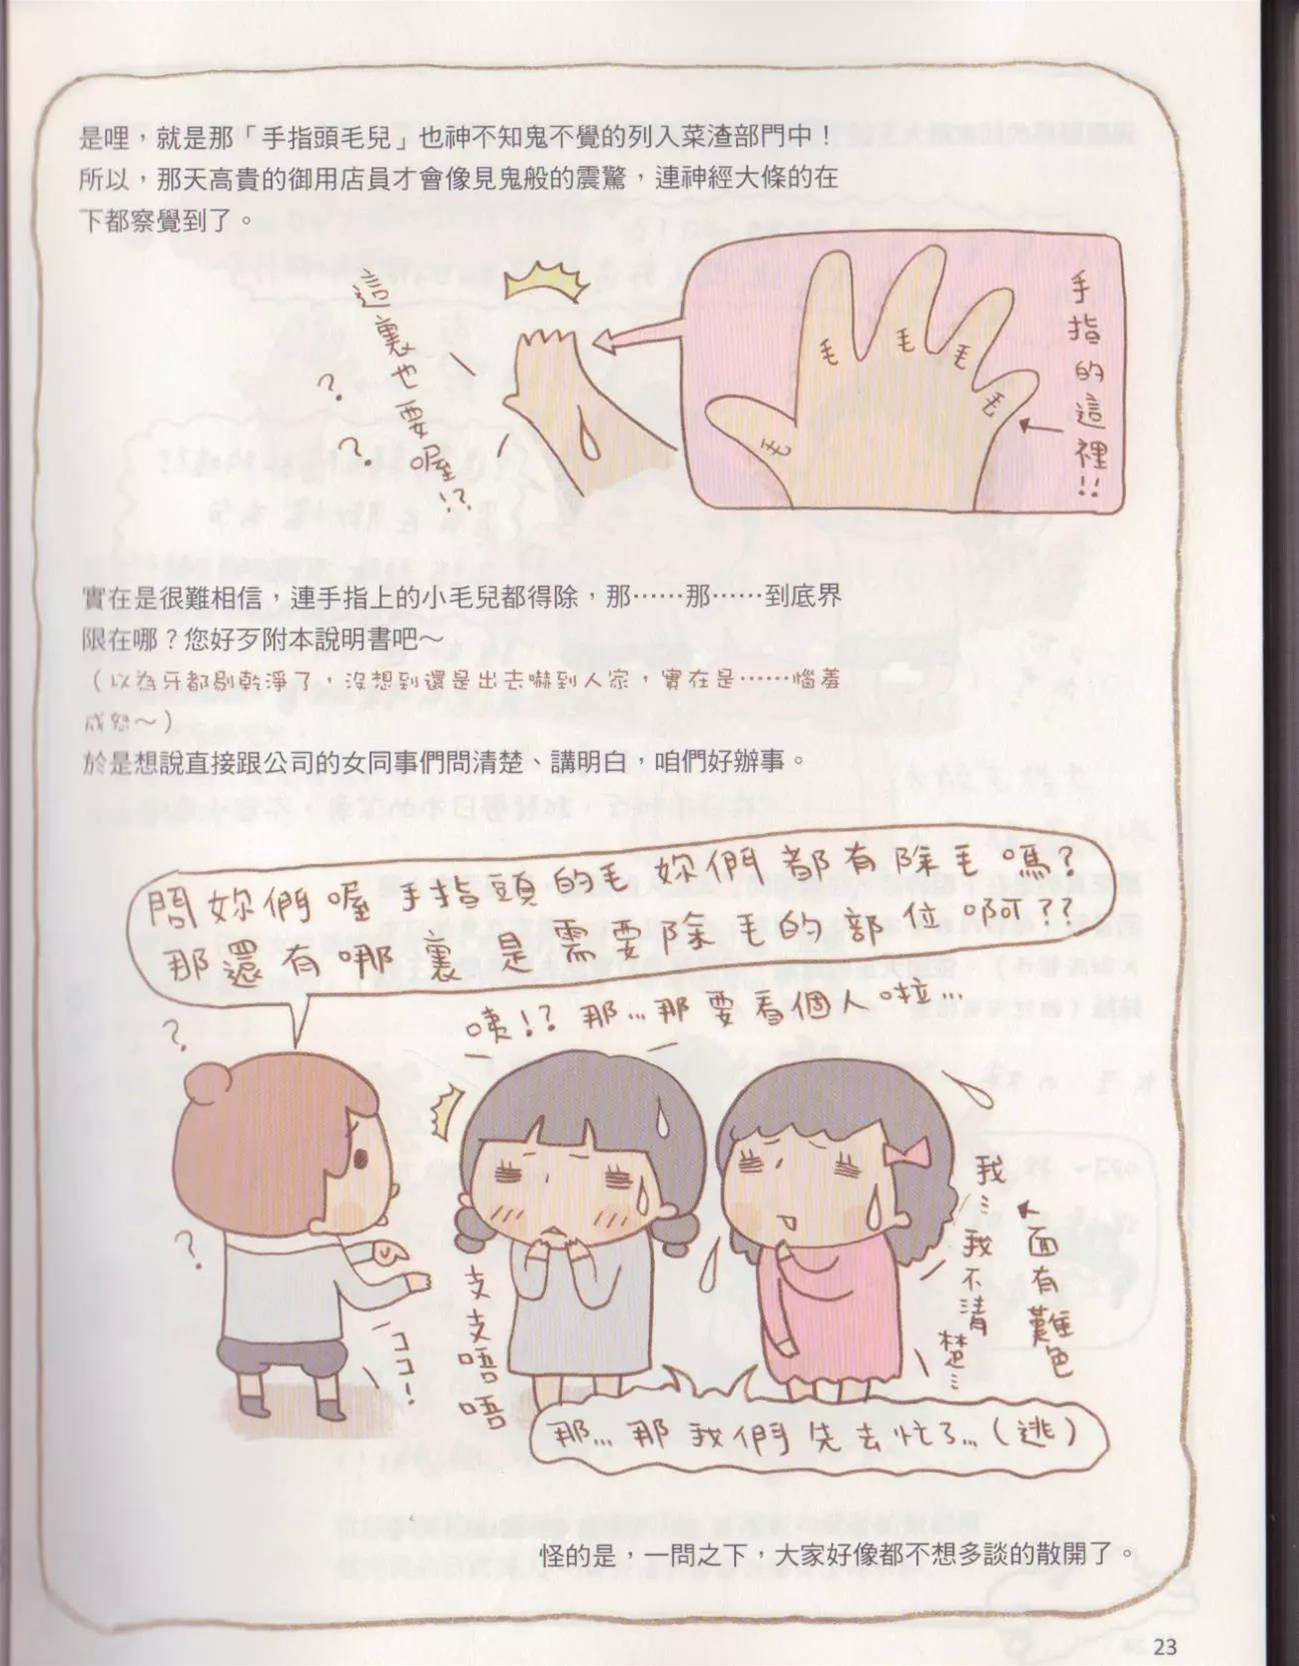 是哩，就是那「手指頭毛兒」也神不知鬼不覺的列入菜渣部門中！
所以，那天高貴的御用店員才會像見鬼般的震驚，連神經大條的在
下都察覺到了。
這裏也要喔!?
?
?
手指的這裡!!
毛
毛
毛
毛
毛
實在是很難相信，連手指上的小毛兒都得除，那……那……到底界
限在哪？您好歹附本說明書吧～
（以為牙都剔乾淨了，沒想到還是出去嚇到人家，實在是……惱羞
成怒～）
於是想說直接跟公司的女同事們問清楚、講明白，咱們好辦事。
問妳們喔手指頭的毛妳們都有除毛嗎?
那還有哪裏是需要除毛的部位啊??
咦!?那...那要看個人啦...
?
?
ココ!
支支唔唔
我...我不清楚...
面有難色
那...那我們先去忙了...(逃)
怪的是，一問之下，大家好像都不想多談的散開了。
23